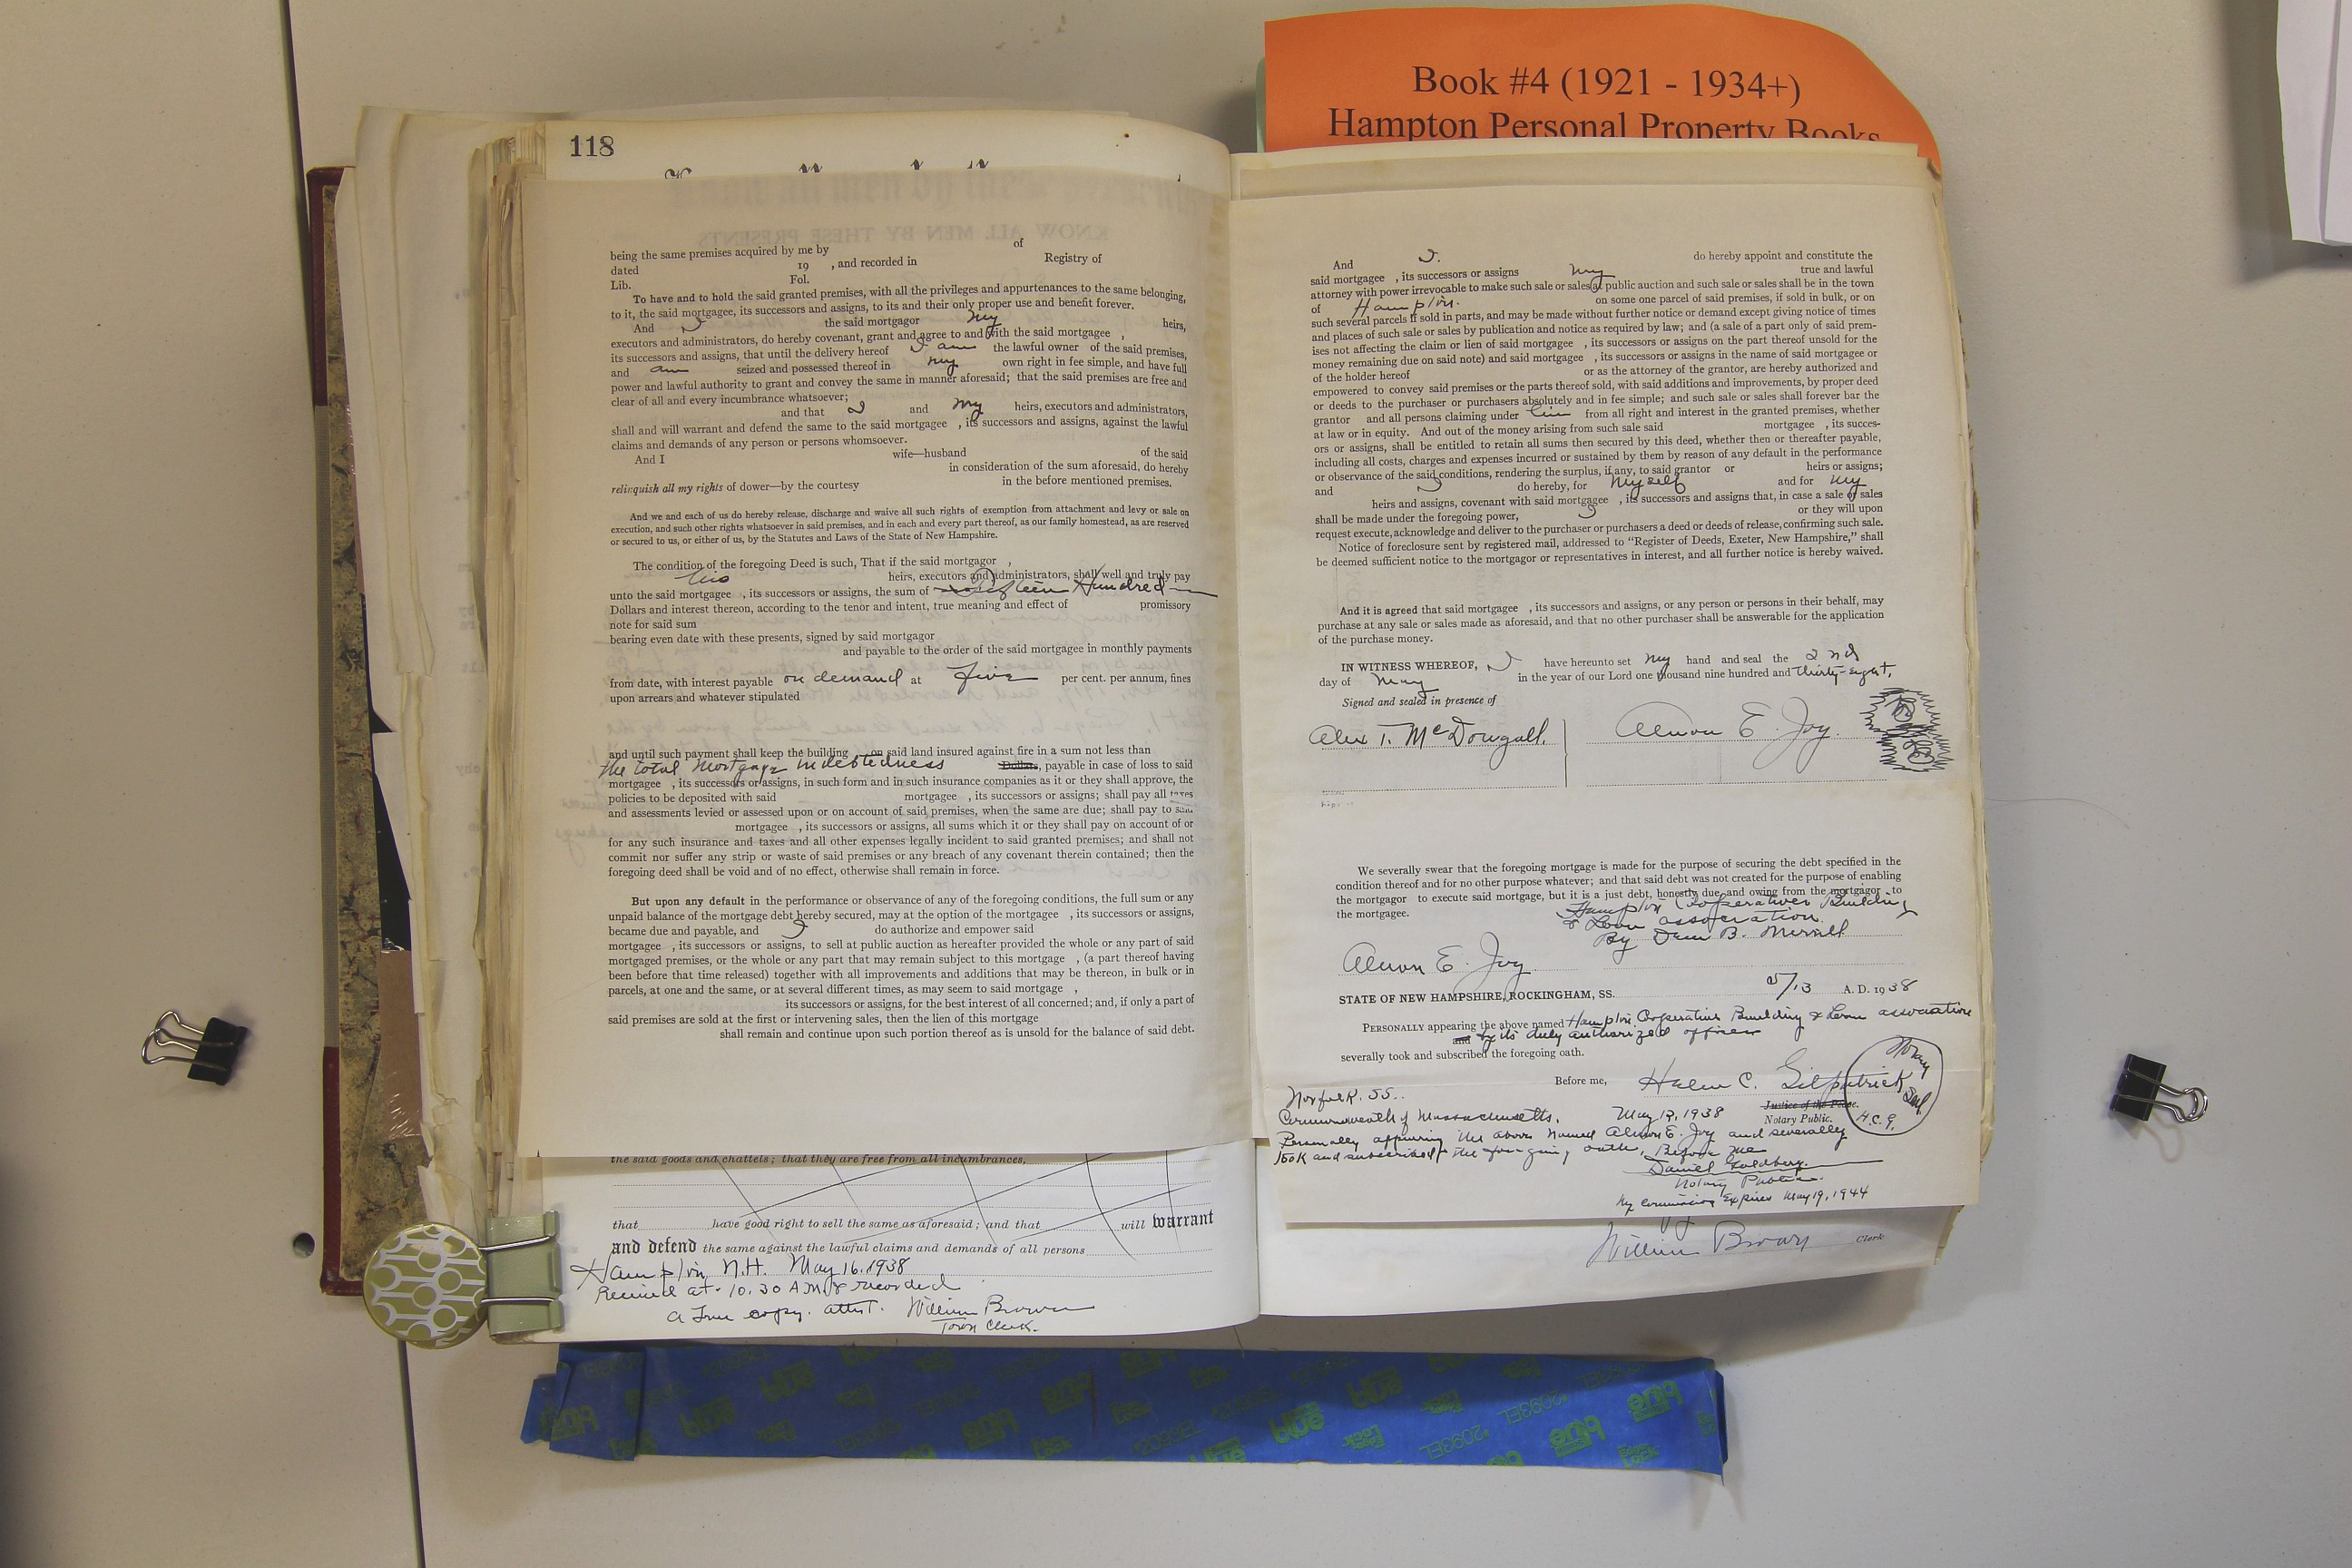 Book #4 (1921 - 1934+)
Hampton Personal Property Books
118
being the same premises acquired by me by of
dated 19 , and recorded in Registry of
Lib. Fol.
To have and to hold the said granted premises, with all the privileges and appurtenances to the same belonging,
to it, the said mortgagee, its successors and assigns, to its and their only proper use and benefit forever.
And I the said mortgagor my heirs,
executors and administrators, do hereby covenant, grant and agree to and with the said mortgagee ,
its successors and assigns, that until the delivery hereof I am the lawful owner of the said premises,
and am seized and possessed thereof in my own right in fee simple, and have full
power and lawful authority to grant and convey the same in manner aforesaid; that the said premises are free and
clear of all and every incumbrance whatsoever;
and that I and my heirs, executors and administrators,
shall and will warrant and defend the same to the said mortgagee , its successors and assigns, against the lawful
claims and demands of any person or persons whomsoever.
And I wife—husband of the said
in consideration of the sum aforesaid, do hereby
relinquish all my rights of dower—by the courtesy in the before mentioned premises.
And we and each of us do hereby release, discharge and waive all such rights of exemption from attachment and levy or sale on
execution, and such other rights whatsoever in said premises, and in each and every part thereof, as our family homestead, as are reserved
or secured to us, or either of us, by the Statutes and Laws of the State of New Hampshire.
The condition of the foregoing Deed is such, That if the said mortgagor ,
his heirs, executors and administrators, shall well and truly pay
unto the said mortgagee , its successors or assigns, the sum of Fifteen Hundred
Dollars and interest thereon, according to the tenor and intent, true meaning and effect of promissory
note for said sum
bearing even date with these presents, signed by said mortgagor
and payable to the order of the said mortgagee in monthly payments
from date, with interest payable on demand at five per cent. per annum, fines
upon arrears and whatever stipulated
and until such payment shall keep the building on said land insured against fire in a sum not less than
the total mortgage indebtedness Dollars, payable in case of loss to said
mortgagee , its successors or assigns, in such form and in such insurance companies as it or they shall approve, the
policies to be deposited with said mortgagee , its successors or assigns; shall pay all taxes
and assessments levied or assessed upon or on account of said premises, when the same are due; shall pay to said
mortgagee , its successors or assigns, all sums which it or they shall pay on account of or
for any such insurance and taxes and all other expenses legally incident to said granted premises; and shall not
commit nor suffer any strip or waste of said premises or any breach of any covenant therein contained; then the
foregoing deed shall be void and of no effect, otherwise shall remain in force.
But upon any default in the performance or observance of any of the foregoing conditions, the full sum or any
unpaid balance of the mortgage debt hereby secured, may at the option of the mortgagee , its successors or assigns,
became due and payable, and I do authorize and empower said
mortgagee , its successors or assigns, to sell at public auction as hereafter provided the whole or any part of said
mortgaged premises, or the whole or any part that may remain subject to this mortgage , (a part thereof having
been before that time released) together with all improvements and additions that may be thereon, in bulk or in
parcels, at one and the same, or at several different times, as may seem to said mortgagee ,
its successors or assigns, for the best interest of all concerned; and, if only a part of
said premises are sold at the first or intervening sales, then the lien of this mortgage
shall remain and continue upon such portion thereof as is unsold for the balance of said debt.
the said goods and chattels; that they are free from all incumbrances,
that have good right to sell the same as aforesaid; and that will warrant
and defend the same against the lawful claims and demands of all persons
Hampton, N.H. May 16. 1938
Received at 10.30 A.M. & recorded
a True copy. attest. William Brown
Town Clerk.
And I. do hereby appoint and constitute the
said mortgagee , its successors or assigns my true and lawful
attorney with power irrevocable to make such sale or sales at public auction and such sale or sales shall be in the town
of Hampton. on some one parcel of said premises, if sold in bulk, or on
such several parcels if sold in parts, and may be made without further notice or demand except giving notice of times
and places of such sale or sales by publication and notice as required by law; and (a sale of a part only of said prem-
ises not affecting the claim or lien of said mortgagee , its successors or assigns on the part thereof unsold for the
money remaining due on said note) and said mortgagee , its successors or assigns in the name of said mortgagee or
of the holder hereof or as the attorney of the grantor, are hereby authorized and
empowered to convey said premises or the parts thereof sold, with said additions and improvements, by proper deed
or deeds to the purchaser or purchasers absolutely and in fee simple; and such sale or sales shall forever bar the
grantor and all persons claiming under him from all right and interest in the granted premises, whether
at law or in equity. And out of the money arising from such sale said mortgagee , its succes-
ors or assigns, shall be entitled to retain all sums then secured by this deed, whether then or thereafter payable,
including all costs, charges and expenses incurred or sustained by them by reason of any default in the performance
or observance of the said conditions, rendering the surplus, if any, to said grantor or heirs or assigns;
and I do hereby, for myself and for my
heirs and assigns, covenant with said mortgagee , its successors and assigns that, in case a sale or sales
shall be made under the foregoing power, I or they will upon
request execute, acknowledge and deliver to the purchaser or purchasers a deed or deeds of release, confirming such sale.
Notice of foreclosure sent by registered mail, addressed to "Register of Deeds, Exeter, New Hampshire," shall
be deemed sufficient notice to the mortgagor or representatives in interest, and all further notice is hereby waived.
And it is agreed that said mortgagee , its successors and assigns, or any person or persons in their behalf, may
purchase at any sale or sales made as aforesaid, and that no other purchaser shall be answerable for the application
of the purchase money.
IN WITNESS WHEREOF, I have hereunto set my hand and seal the 2nd
day of May in the year of our Lord one thousand nine hundred and thirty-eight.
Signed and sealed in presence of
Alex T. McDougall. Almon E. Joy.
We severally swear that the foregoing mortgage is made for the purpose of securing the debt specified in the
condition thereof and for no other purpose whatever; and that said debt was not created for the purpose of enabling
the mortgagor to execute said mortgage, but it is a just debt, honestly due and owing from the mortgagor to
the mortgagee. Hampton Cooperative Building
& Loan association
By Dean B. Merrill
Almon E. Joy
STATE OF NEW HAMPSHIRE, ROCKINGHAM, SS. 5/13 A. D. 1938
PERSONALLY appearing the above named Hampton Cooperative Building & Loan association
and by its duly authorized officer
severally took and subscribed the foregoing oath.
Before me, Helen C. Gilpatrick
Justice of the Peace.
Notary Public.
Notary Seal. H.C.G.
Norfolk. SS.
Commonwealth of Massachusetts. May 12, 1938
Personally appearing the above named Almon E. Joy and severally
took and subscribed the foregoing oath, Before me
Daniel Goldberg.
Notary Public.
My commission Expires May 19, 1944
William Brown Clerk